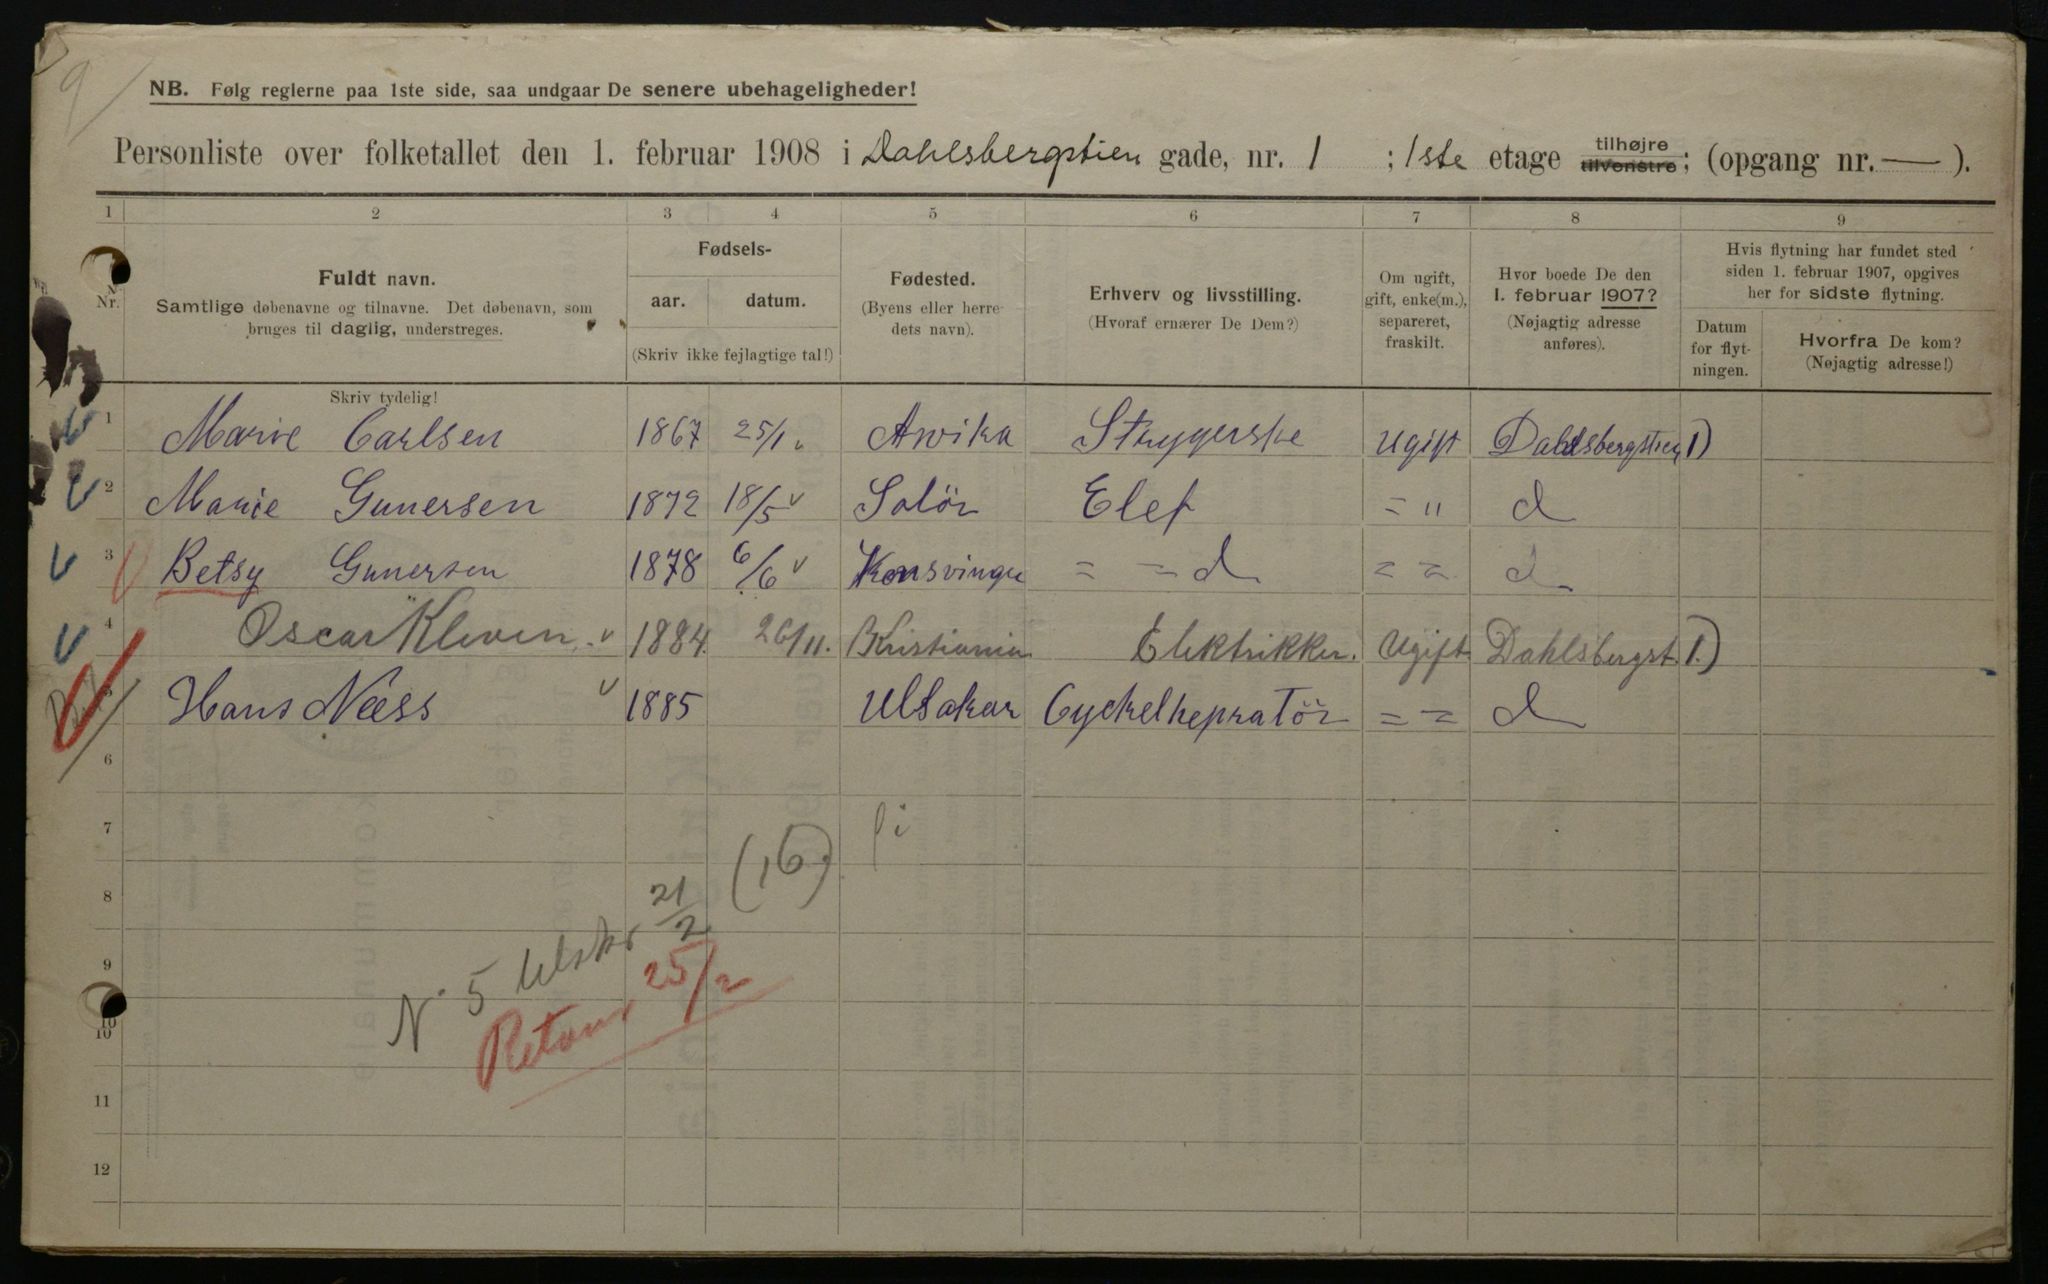 9
NB. Følg reglerne paa 1ste side, saa undgaar De senere ubehageligheder!
Personliste over folketallet den 1. februar 1908 i Dahlsbergstien gade, nr. 1 ; 1ste etage tilhøjre tilvenstre; (opgang nr. — ).
1 2 3 4 5 6 7 8 9
Nr.
Fuldt navn.
Samtlige døbenavne og tilnavne. Det døbenavn, som
bruges til daglig, understreges.
Fødsels-
aar. datum.
(Skriv ikke fejlagtige tal!)
Fødested.
(Byens eller herre-
dets navn).
Erhverv og livsstilling.
(Hvoraf ernærer De Dem?)
Om ugift,
gift, enke(m.),
separeret,
fraskilt.
Hvor boede De den
1. februar 1907?
(Nøjagtig adresse
anføres).
Hvis flytning har fundet sted
siden 1. februar 1907, opgives
her for sidste flytning.
Datum
for flyt-
ningen.
Hvorfra De kom?
(Nøjagtig adresse!)
Skriv tydelig!
1 Marie Carlsen 1867 25/1 Arvika Strygerske Ugift Dahlsbergstien 1)
2 Marie Gunersen 1872 18/5 Solör Elef = " d
3 Betsy Gunersen 1878 6/6 Konsvinger = = d = = d
4 Oscar Kleven 1884 26/11. Kristiania Elektrikker. Ugift Dahlsbergst. 1.)
5 Hans Næss 1885 Ulsaker Cyckelrepratör = = d
6
7
(16)
8
21/2
N 5 Ulskr
9
25/2
Retour
10
10
11
12